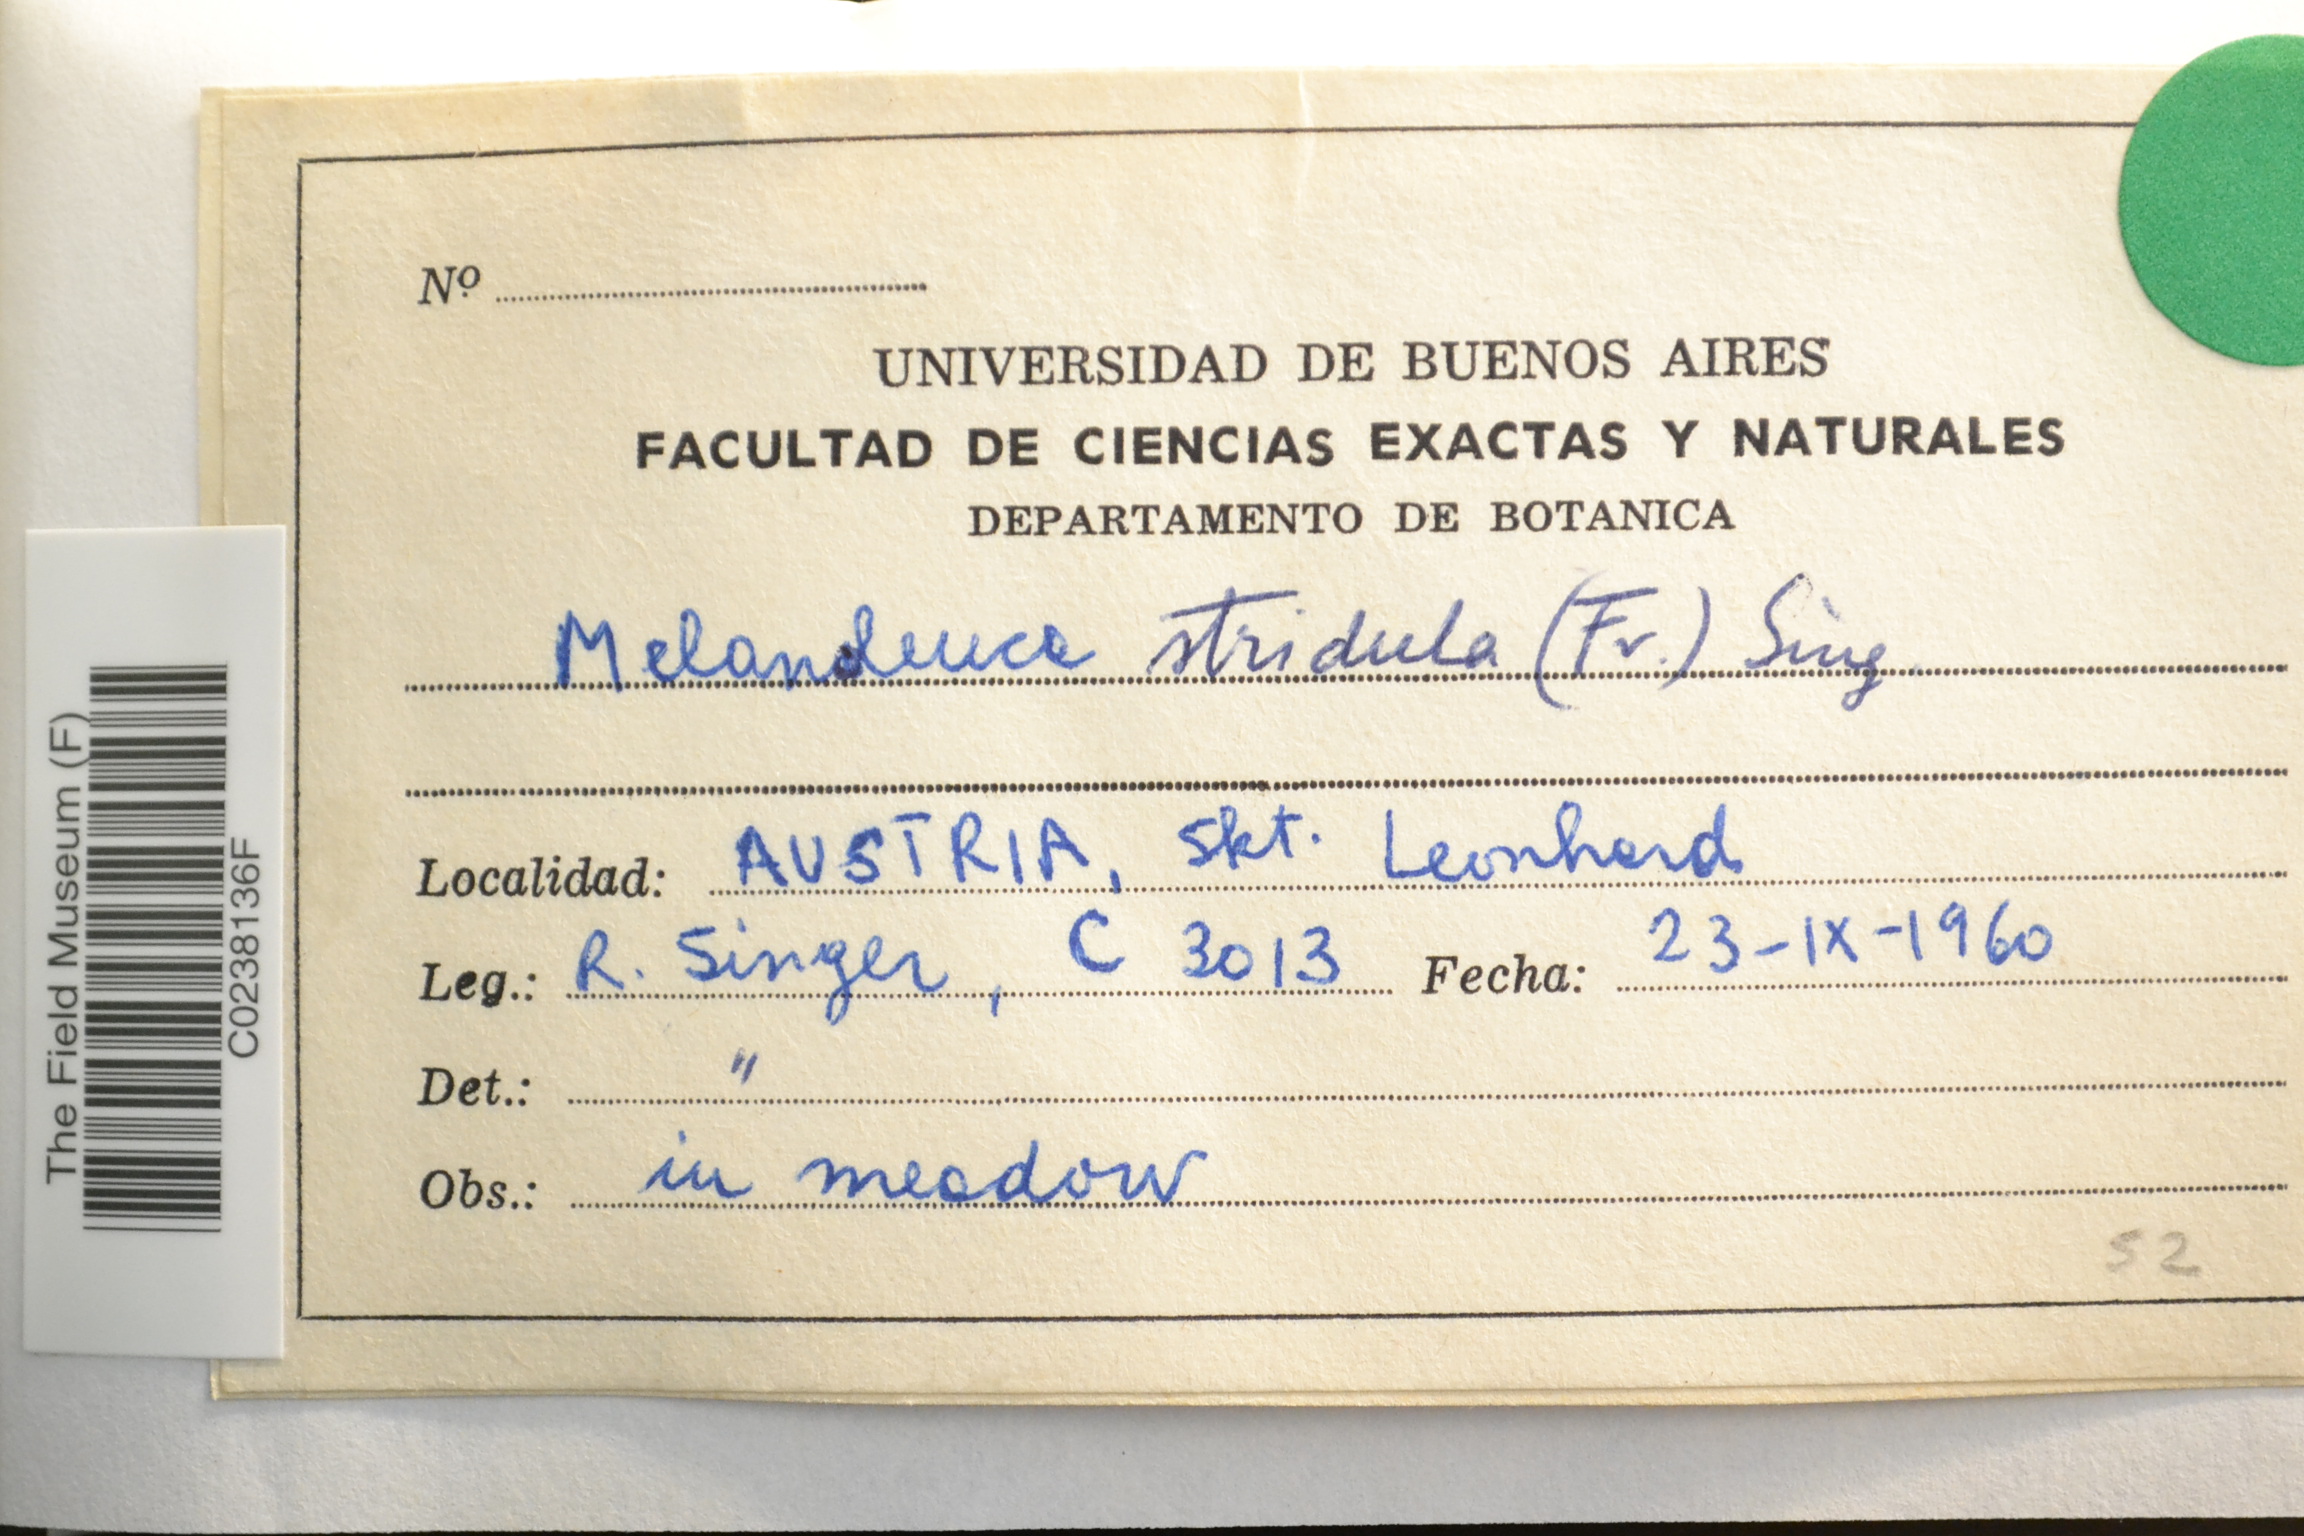 Nº
UNIVERSIDAD DE BUENOS AIRES
FACULTAD DE CIENCIAS EXACTAS Y NATURALES
DEPARTAMENTO DE BOTANICA
Melanoleuca stridula (Fr.) Sing.
Localidad: AUSTRIA, Skt. Leonhard
Leg.: R. Singer, C 3013 Fecha: 23-IX-1960
Det.: "
Obs.: in meadow
52
The Field Museum (F)
C0238136F